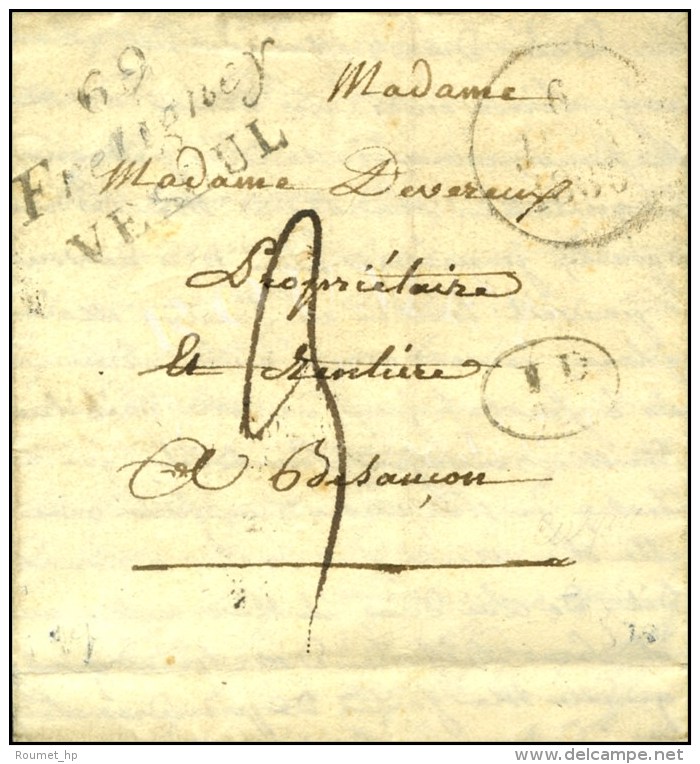 69
Fretigney
VESOUL
Madame
6
Madame Devereux
Propriétaire
Et Rentiere
3
ID
A Besançon
Roumet_hp
www.delcampe.net